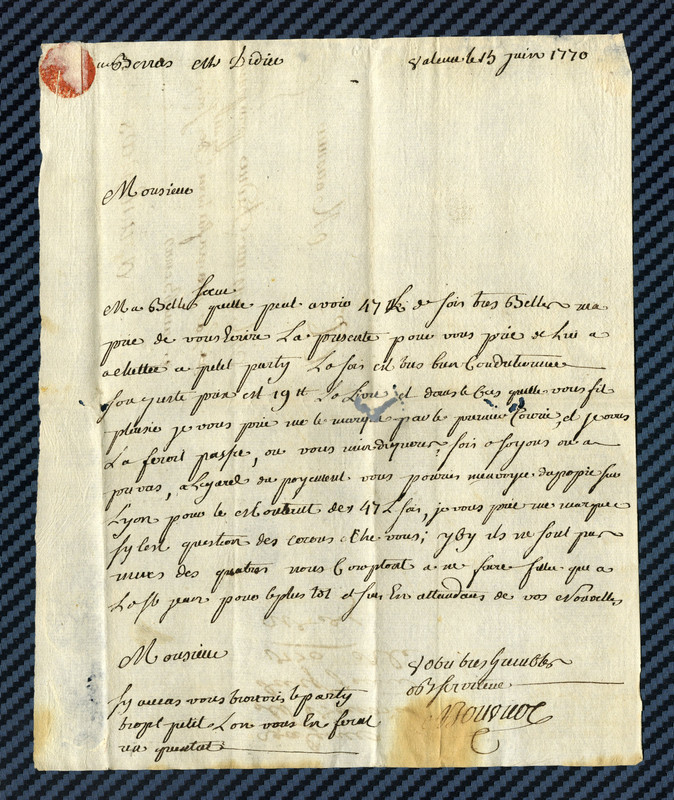 Berras Mr Didier Valence le 15 juin 1770
Monsieur
sœur
Ma Belle quelle peut avoir 47 lb de sois tres Belles ma
prie de vous Ecrire La presente pour vous prie de lui a
achetter a petit party La sois est tres bien Conditionnee
son juste prix est 19 tt La Livre et dans le Cas quelle vous fit
plaisir je vous prie me le marque par le premier Courie, et je vous
La feroit passer, ou vous mindiqueres, sois a soyons ou a
privas, a Legard du payement vous pourres menvoyer du papie sur
Lyon pour le Montent des 47 L soi, je vous prie me marque
sy lon question des cocons Che vous; ysy ils ne sont pas
murs des quatres nous Comptont a ne faire filer que a
La St jean pour le plus tot et suis En attandant de vos Nouvelles
Monsieur Votre tres humble
obt serviteur
sy aucas vous trouvois le party
trop petit Lon vous En feroit